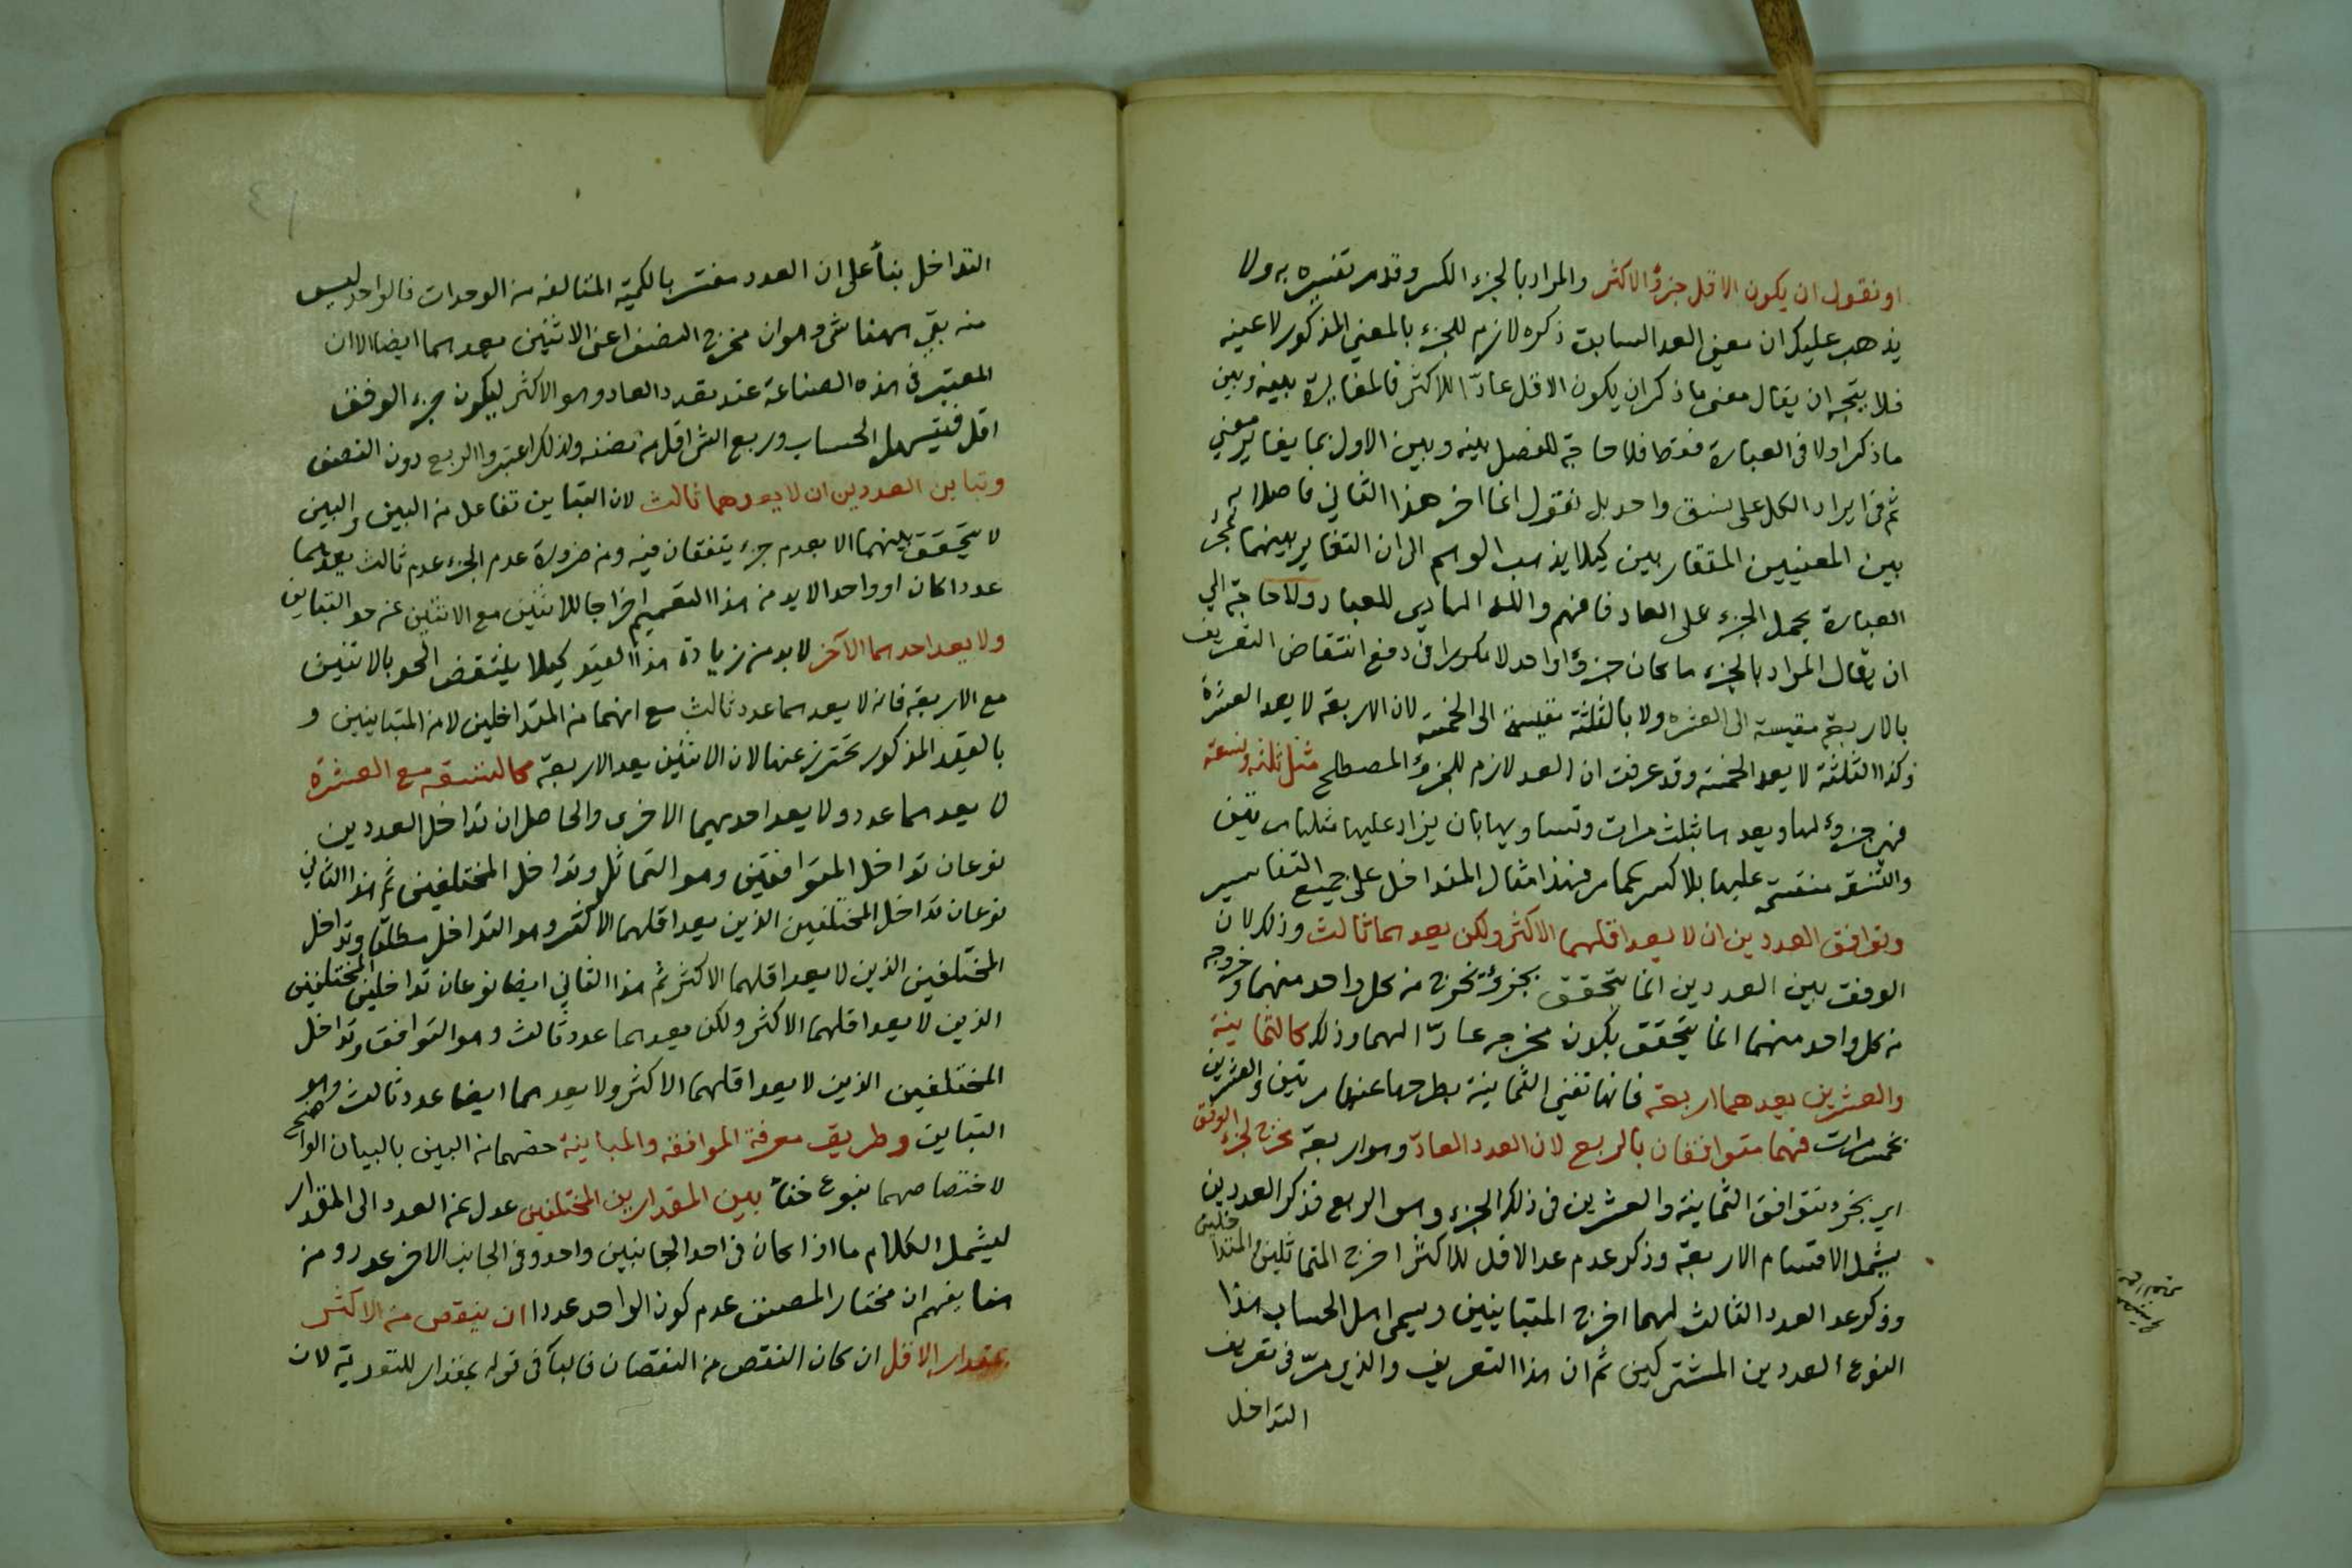 او نقول ان يكون الاقل جزؤ الاكثر والمراد بالجزء الكسر وقد مر تفسيره به ولا
يذهب عليك ان معنى العد السابق ذكره لازم للجزء بالمعنى المذكور لا عينه
فلا يتجه ان يقال معنى ما ذكر ان يكون الاقل عادّا للاكثر فالمغايرة بينه وبين
ما ذكر اولا فى العبارة فقط فلا حاجة للفصل بينه وبين الاول بما يغاير معنى
ثم فى ايراد الكل على نسق واحد بل نقول انما اخر هذا الثانى فاصلا به
بين المعنيين المتقاربين كيلا يذهب الوهم الى ان التغاير بينهما بمجرد
العبارة بحمل الجزء على العاد فافهم والله الهادى للعباد ولا حاجة الى
ان يقال المراد بالجزء ما كان جزؤا واحدا لا مكررا فى دفع انتقاض التعريف
بالاربعة مقيسة الى العشرة ولا بالثلثة مقيسة الى الخمسة لان الاربعة لا يعد العشرة
وكذا الثلثة لا يعد الخمسة وقد عرفت ان العد لازم للجزؤ المصطلح مثل ثلثه وتسعة
فهى جزؤ لها ويعدها بثلث مرات وتساويها بان يزاد عليها مثلها مرتين
والتسعة منقسمة عليها بلا كسر كما مر فهذا مثال المتداخل على جميع التفاسير
وتوافق العددين ان لا يعد اقلهما الاكثر ولكن يعدهما ثالث وذلك لان
الوفق بين العددين انما يتحقق بجزؤ يخرج من كل واحد منهما وخروجه
من كل واحد منهما انما يتحقق بكون مخرجه عادّا لهما وذلك كالثمانية
والعشرين يعدهما اربعة فانها تفنى الثمانية بطرحها عنها مرتين والعشرين
بخمس مرات فهما متوافقان بالربع لان العدد العادّ وهو اربعة مخرج لجزء الوفق
اى بجزء يتوافق الثمانية والعشرين فى ذلك الجزء وهو الربع فذكر العددين
يشمل الاقسام الاربعة وذكر عدم عد الاقل للاكثر اخرج المتماثلين والمتداخلين
وذكر عد العدد الثالث لهما اخرج المتباينين ويسمى اهل الحساب هذا
النوع العددين المشتركين ثم ان هذا التعريف والذى مرّ فى تعريف
التداخل
التداخل بناء على ان العدد مفسر بالكمية المتالفة من الوحدات فالواحد ليس
منه بقى ههنا شى وهو ان مخرج النصف اعنى الاثنين يعدهما ايضا الا ان
المعتبر فى هذه الصناعة عند تعدد العاد وهو الاكثر ليكون جزء الوفق
اقل فيتسهل الحساب وربع الشى اقل من نصفه ولذلك اعتبروا الربع دون النصف
وتباين العددين ان لا يعدهما ثالث لان التباين تفاعل من البين والبين
لا يتحقق بينهما الا بعدم جزء يتفقان فيه ومن ضرورة عدم الجزء عدم ثالث يعدهما
عددا كان او واحدا لا بد من هذا التعميم اخراجا للاثنين مع الاثنين عن حد التباين
ولا يعد احدهما الآخر لا بد من زيادة هذا القيد كيلا ينتقض الحد بالاثنين
مع الاربعة فانه لا يعدهما عدد ثالث مع انهما من المتداخلين لا من المتباينين و
بالقيد المذكور تحترز عنها لان الاثنين يعد الاربعة كالتسعة مع العشرة
لا يعدهما عدد ولا يعد احديهما الاخرى والحاصل ان تداخل العددين
نوعان تداخل المتوافقين وهو التماثل وتداخل المختلفين ثم هذا الثانى
نوعان تداخل المختلفين الذين يعد اقلهما الاكثر وهو التداخل مطلقا وتداخل
المختلفين الذين لا يعد اقلهما الاكثر ثم هذا الثانى ايضا نوعان تداخلين المختلفين
الذين لا يعد اقلهما الاكثر ولكن يعدهما عدد ثالث وهو التوافق وتداخل
المختلفين الذين لا يعد اقلهما الاكثر ولا يعدهما ايضا عدد ثالث وهو
التباين وطريق معرفة الموافقة والمباينة خصهما من البين بالبيان الواضح
لاختصاصهما بنوع خفاء بين المقدارين المختلفين عدل عن العدد الى المقدار
ليشمل الكلام ما اذا كان فى احد الجانبين واحد وفى الجانب الاخر عدد ومن
هنا يفهم ان مختار المصنف عدم كون الواحد عددا ان ينقص من الاكثر
بمقدار الاقل ان كان النقص من النقصان فالباء فى قوله بمقدار للتعدية لان